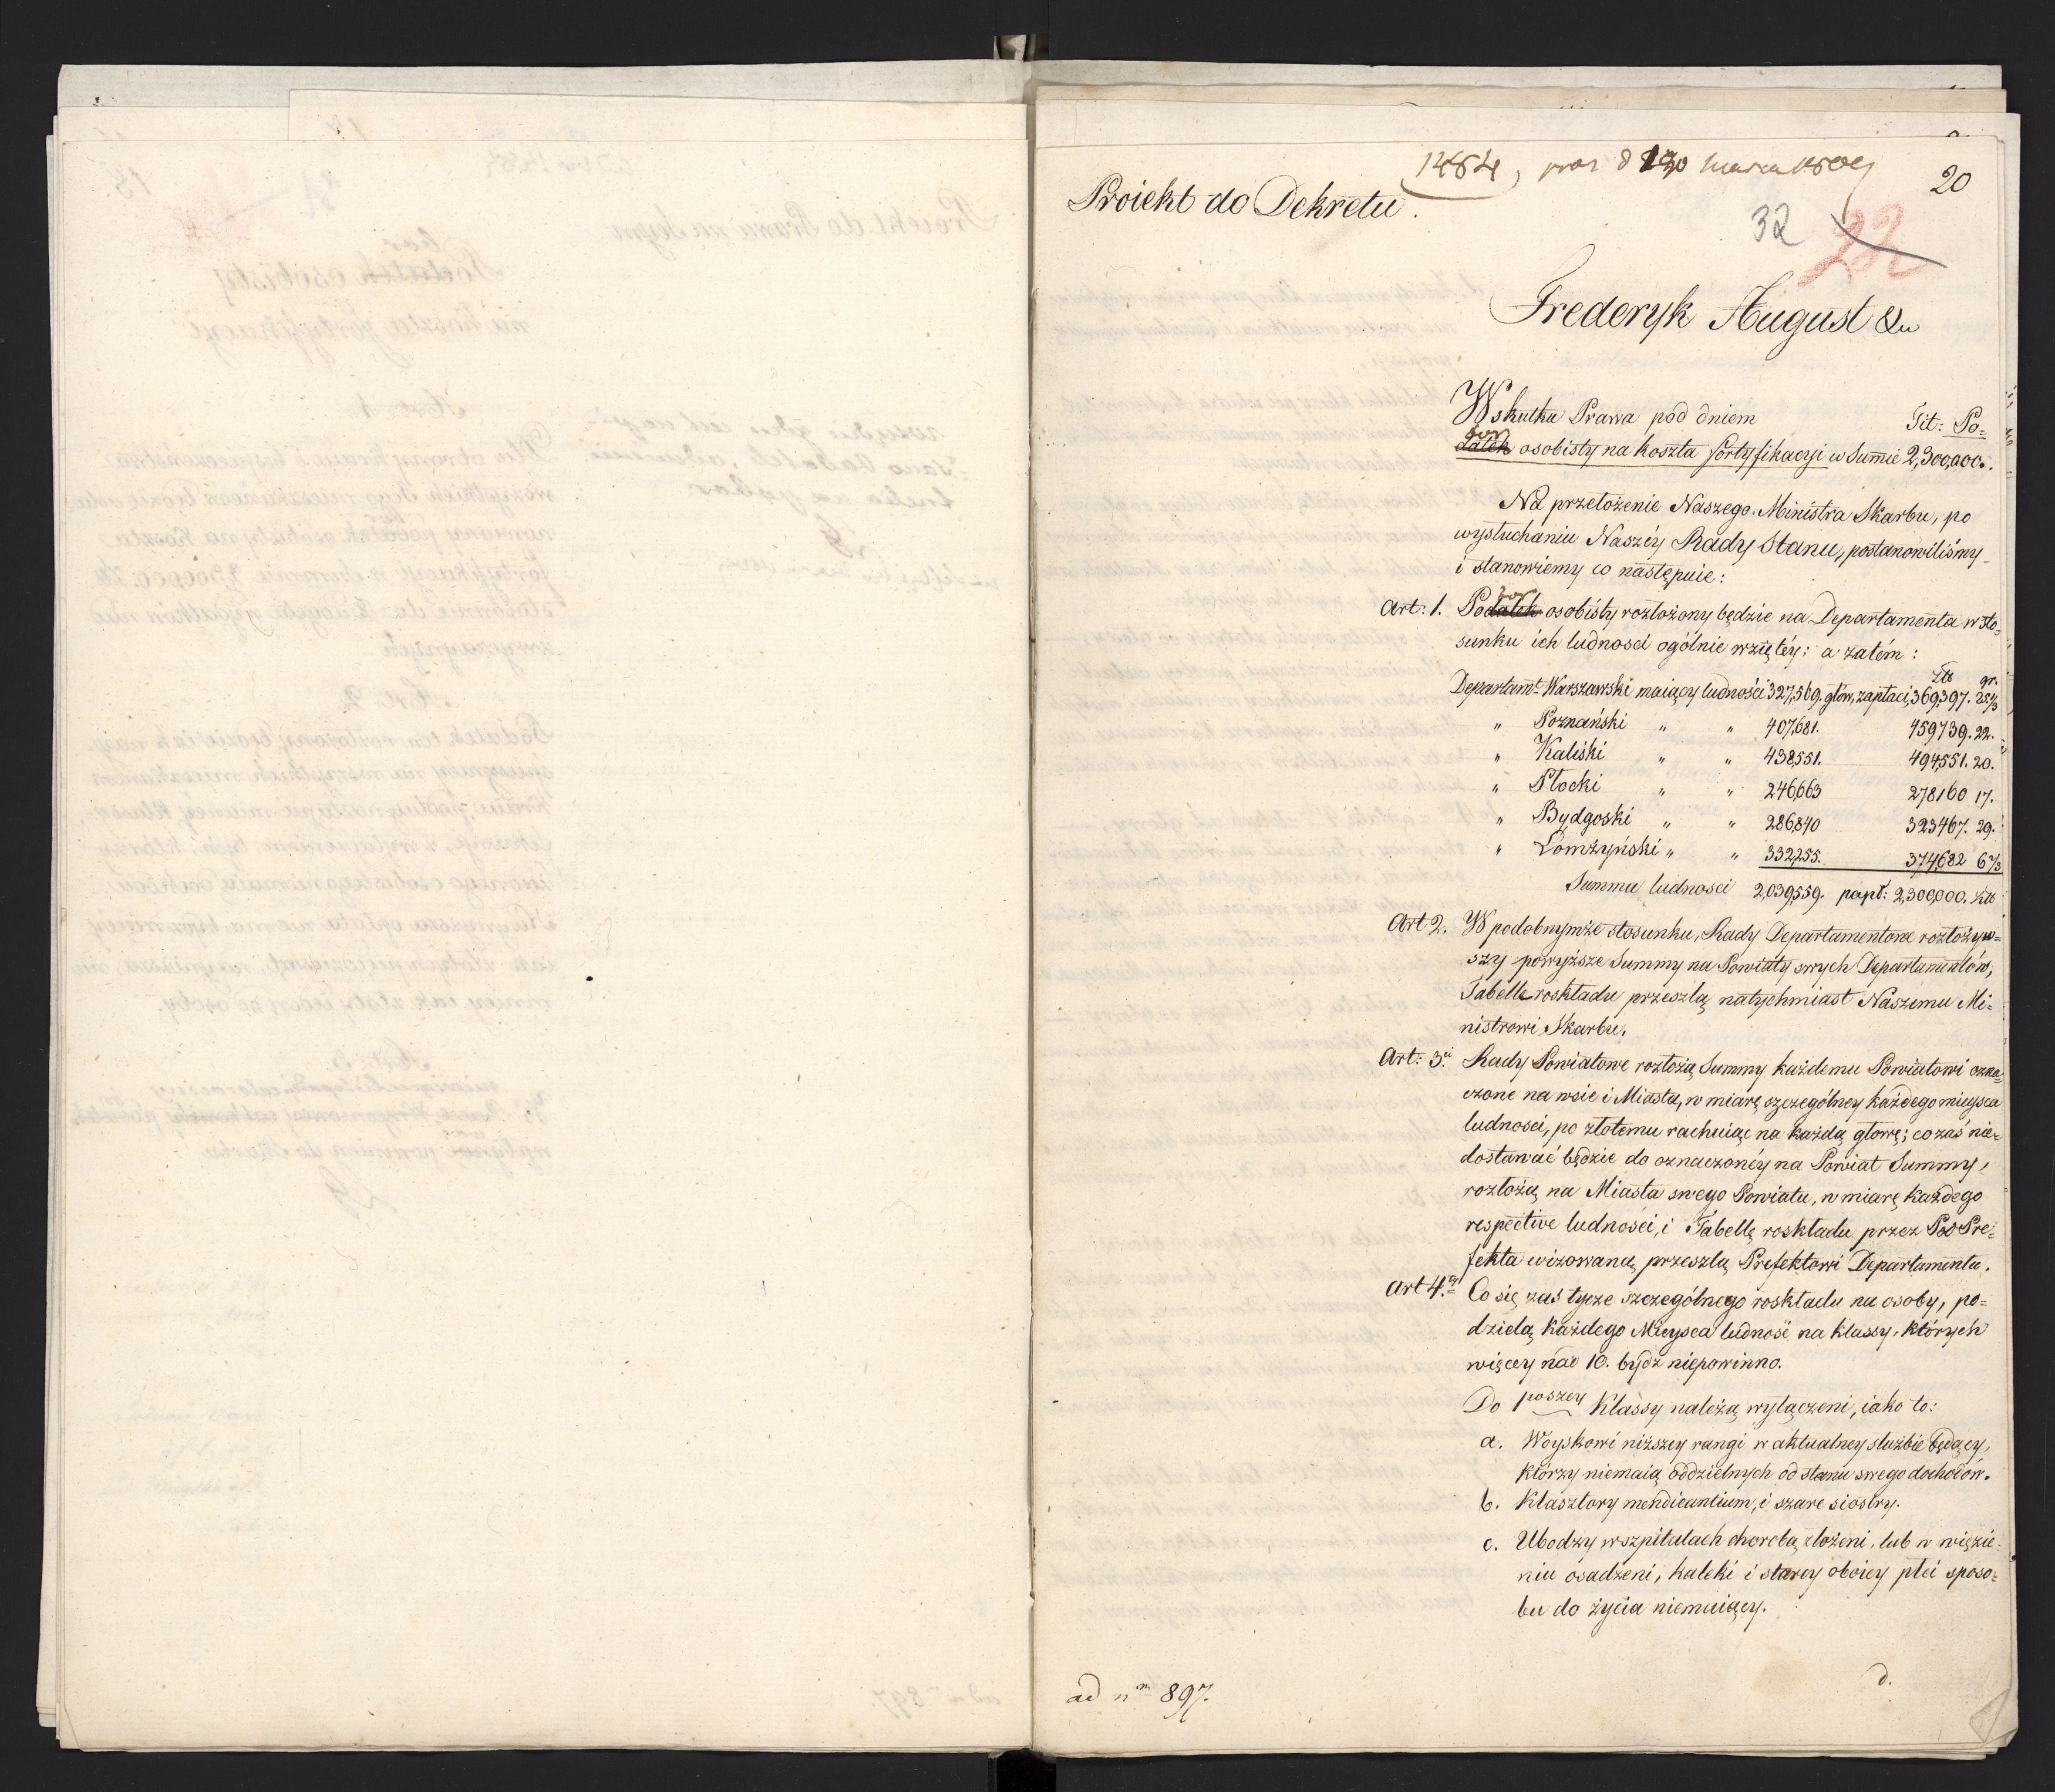 1484, pros d 130 marca 1809
20
Proiekt do Dekretu.
32 22
Frederyk August &u
W skutku Prawa pod dniem Tit: Po=
bor
datek osobisty na koszta fortyfikacyi w Summie 2,300,000.
Na przełożenie Naszego Ministra Skarbu, po
wysłuchaniu Naszéy Rady Stanu, postanowiliśmy
i stanowiemy co następuie:
Art: 1. Podatek osobisty rozłożony będzie na Departamenta w sto=
bor
sunku ich ludności ogólnie wziętéy; a zatém:
Złć gr.
Departamt Warszawski maiący ludności 327,569. głów, zapłaci, 369,397. 25 1/3
" Poznański " " 407,681. 459739. 22.
" Kaliski " " 438,551. 494,551. 20.
" Płocki " " 246,663 278160 17.
" Bydgoski " " 286,840 323467. 29.
" Łomżyński " " 332,255. 374,682 6 2/3
Summa ludności 2,039,559. zapł: 2,300,000. Złć
Art 2. W podobnymże stosunku, Rady Departamentowe rozłożyw=
szy powyższe Summy na Powiaty swych Departamentów,
Tabelle roskładu przeszlą natychmiast Naszemu Mi=
nistrowi Skarbu.
Art: 3ci Rady Powiatowe rozłożą Summy każdemu Powiatowi ozna=
czone na wsie i Miasta, w miarę szczególney każdego mieysca
ludności, po złotemu rachuiąc na każdą głowę; co zaś nie=
dostawać będzie do oznaczonéy na Powiat Summy,
rozłożą na Miasta swego Powiatu, w miarę każdego
respective ludności, i Tabellę roskładu przez PodPre=
fekta wizowaną, przeszlą Prefektowi Departamentu.
Art 4.ty Co się zaś tycze szczególnego roskładu na osoby, po=
dzielą każdego Mieysca ludność na klassy, których
więcey nad 10. bydź niepowinno.
Do 1wszey Klassy należą wyłączeni, iako to:
a. Woyskowi niższey rangi w aktualney służbie będący,
którzy niemaią oddzielnych od stanu swego dochodów.
b. Klasztory mendicantium, i szare siostry.
c. Ubodzy w szpitalach chorobą złożeni, lub w więzie=
niu osadzeni, kaleki i starcy oboiey płci sposo=
bu do życia niemaiący.
d.
ad nm 897.